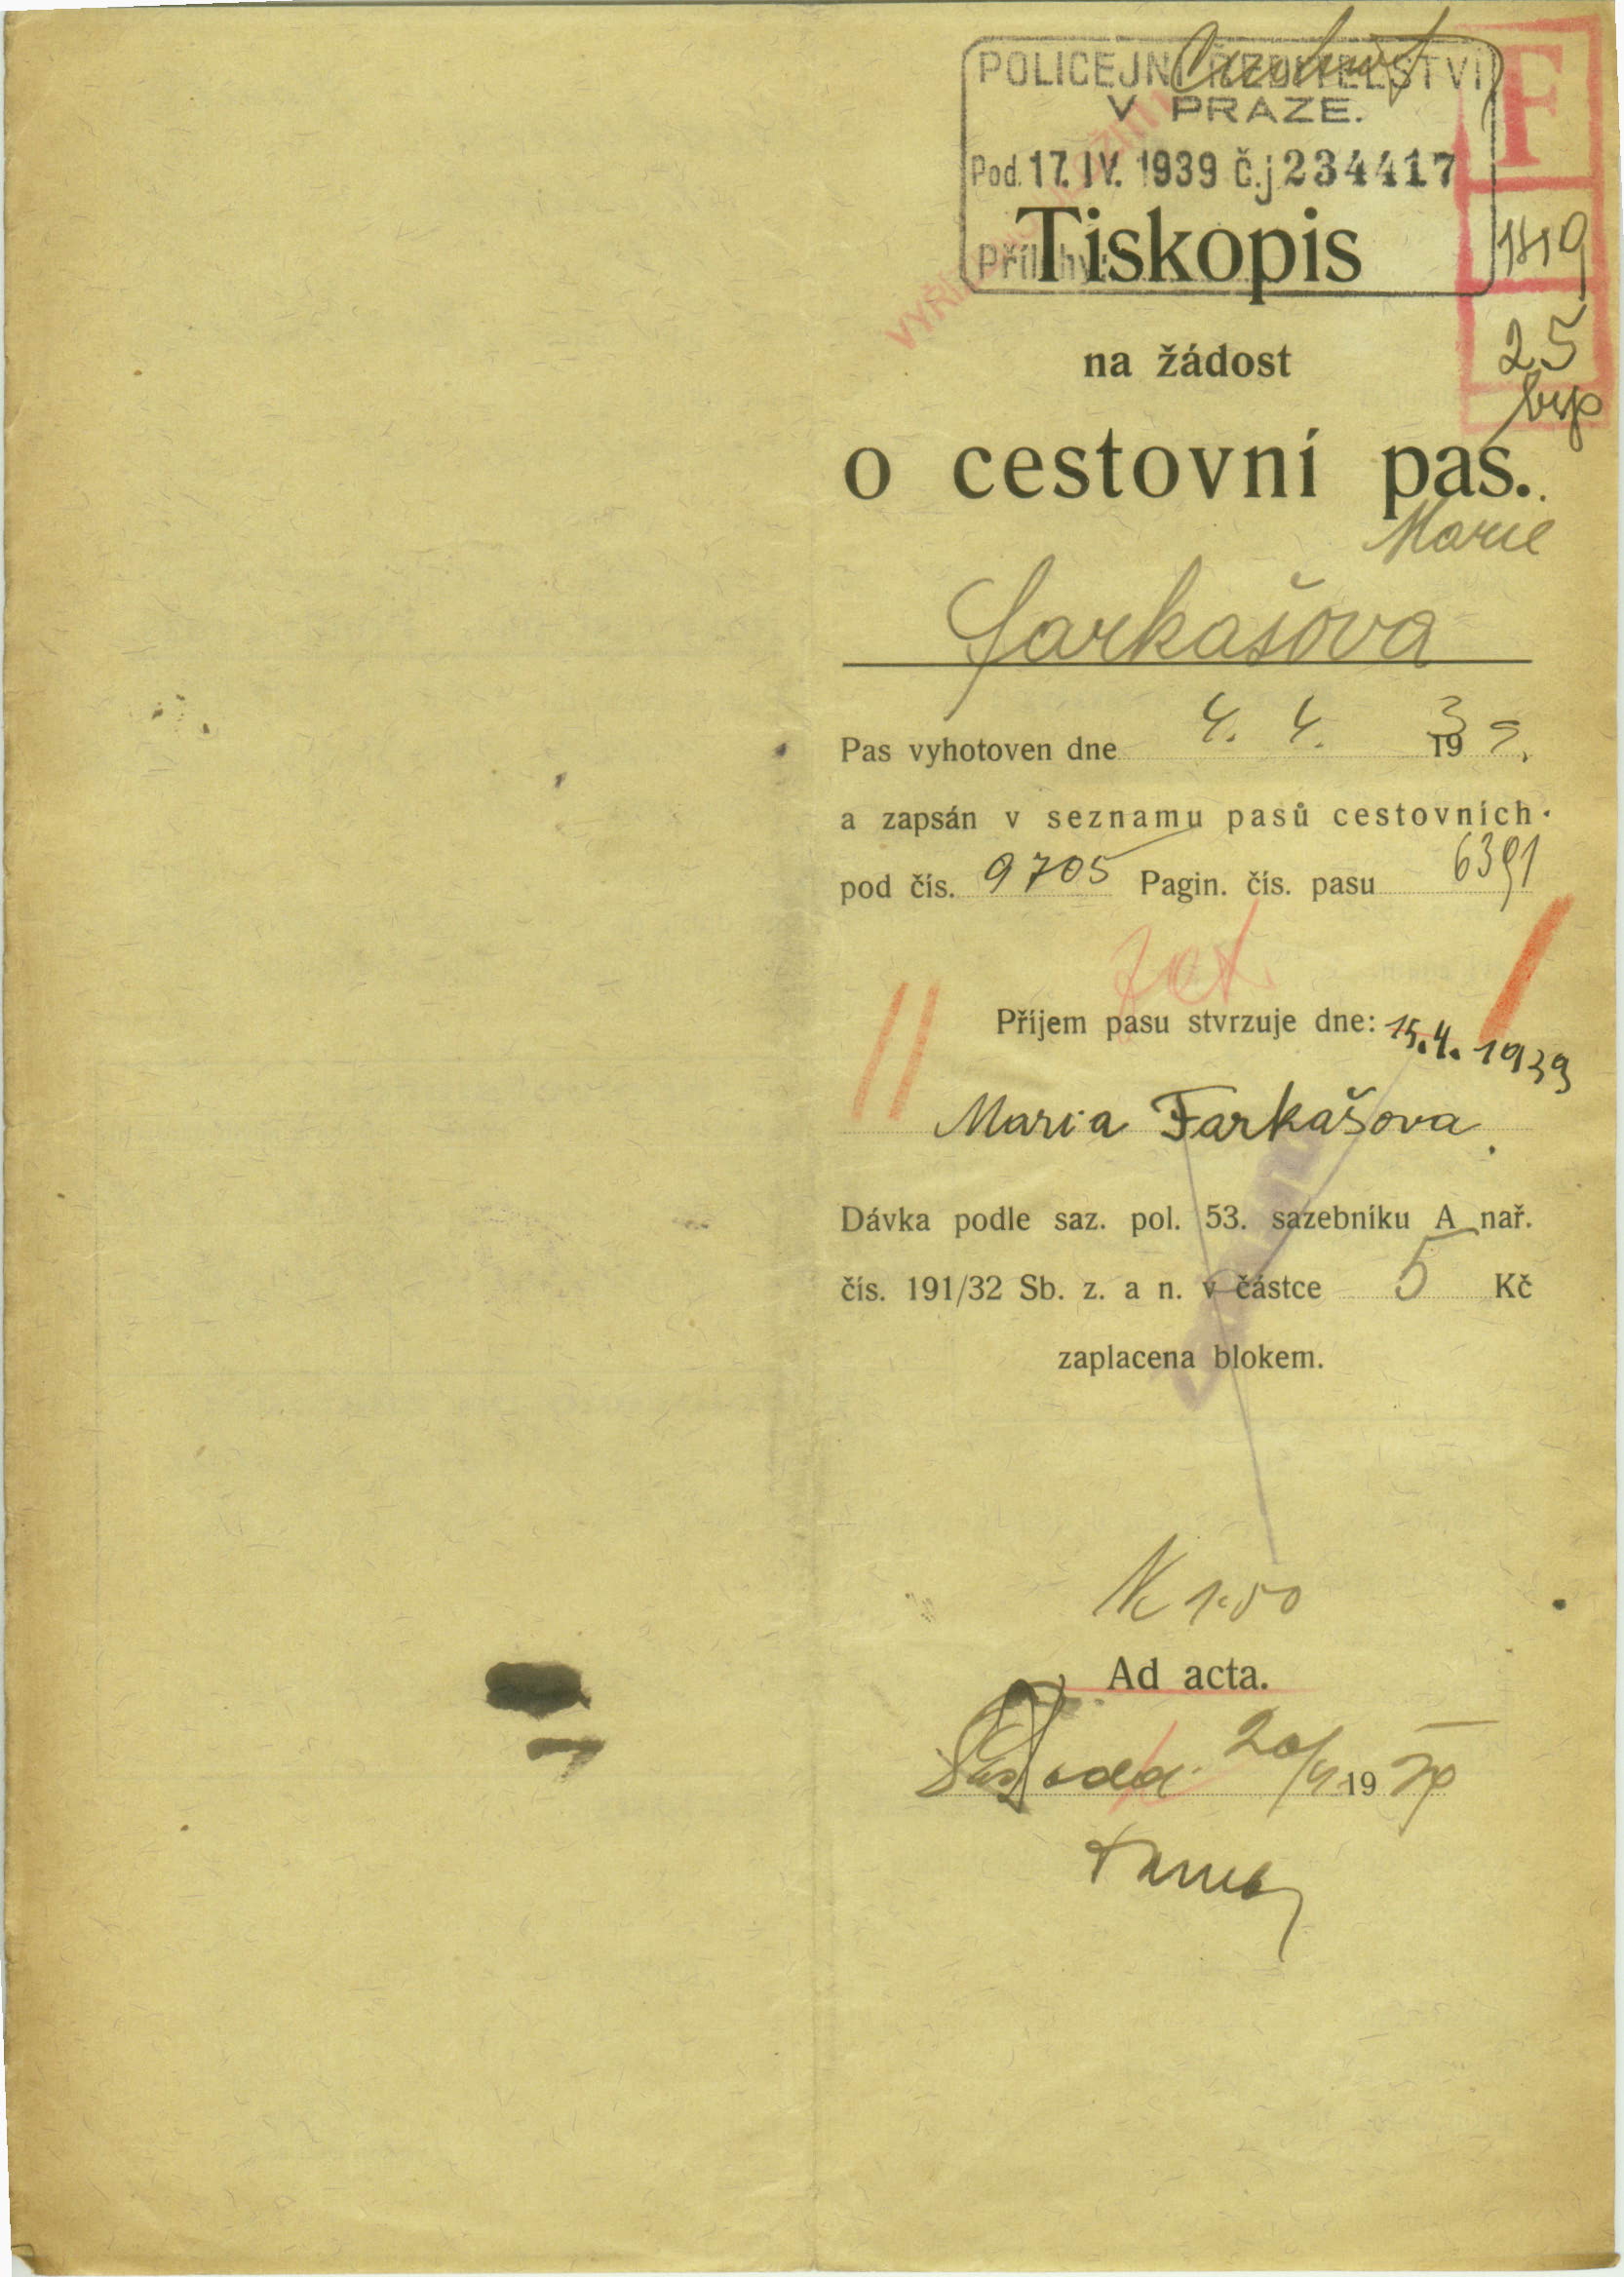 POLICEJNÍ ŘEDITELSTVÍ
V PRAZE.
Pod. 17. IV. 1939 č.j 234417
Přílohy:
F
1419
25
Tiskopis
na žádost
o cestovní pas.
Marie
Farkašova
Pas vyhotoven dne 4. 4. 1939.
a zapsán v seznamu pasů cestovních
pod čís. 9705 Pagin. čís. pasu 6391
Příjem pasu stvrzuje dne: 15.4. 1939
Maria Farkašova.
Dávka podle saz. pol. 53. sazebníku A nař.
čís. 191/32 Sb. z. a n. v částce 5 Kč
zaplacena blokem.
1.50
Ad acta.
20/4 19